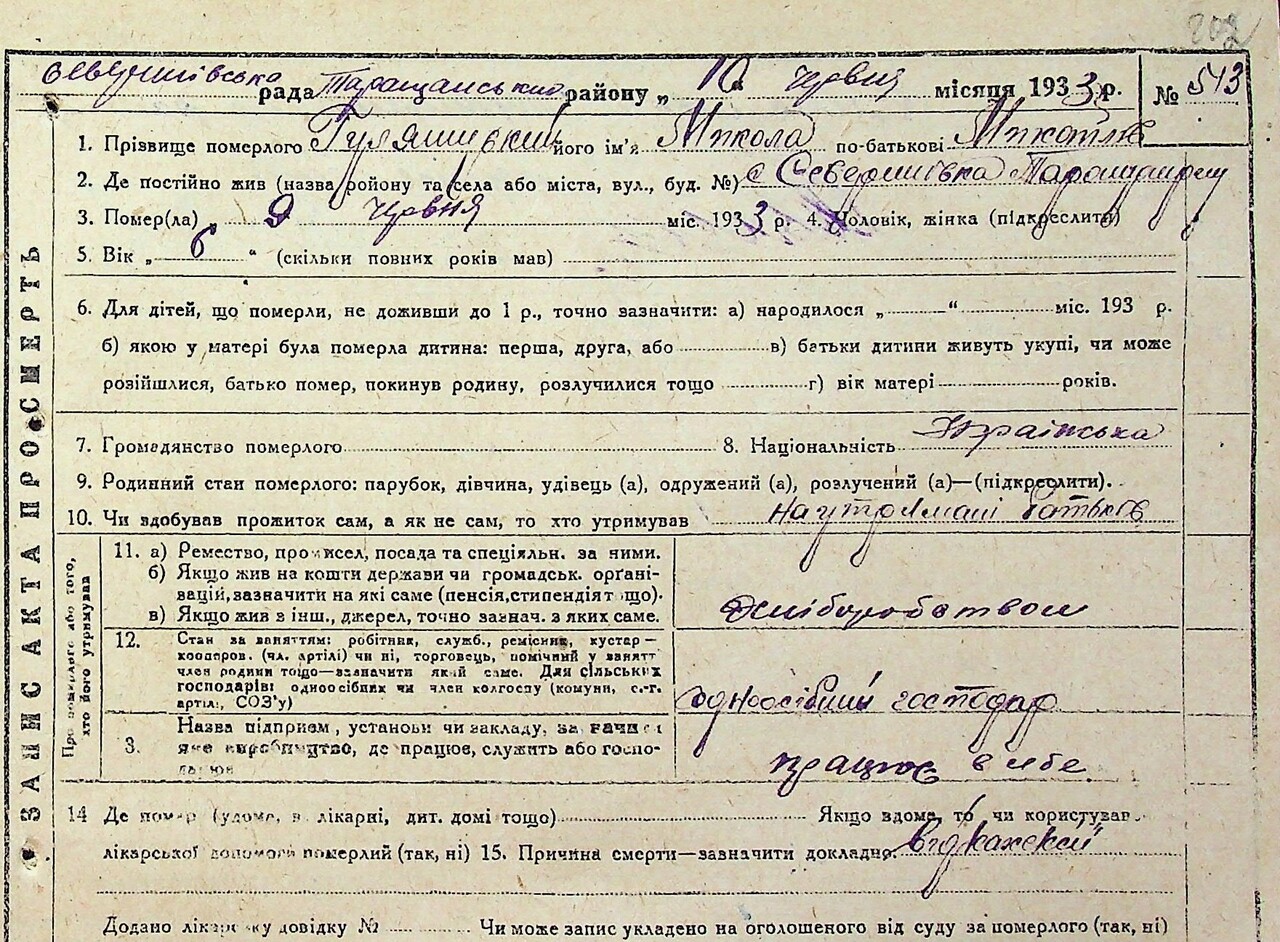 202
Северинівська рада Таращанського району „ 10 червня місяця 1933 р. № 513
1. Прізвище померлого Гуляницький його ім'я Микола по-батькові
2. Де постійно жив (назва району та села або міста, вул., буд. №) с Северинівка
3. Помер(ла) „ 9 червня міс. 1933 р. 4. Чоловік, жінка (підкреслити)
5. Вік „ 6 “ (скільки повних років мав)
6. Для дітей, що померли, не доживши до 1 р., точно зазначити: а) народилося „ “ міс. 193 р.
б) якою у матері була померла дитина: перша, друга, або в) батьки дитини живуть укупі, чи може
розійшлися, батько помер, покинув родину, розлучилися тощо г) вік матері років.
7. Громадянство померлого 8. Національність Українська
9. Родинний стан померлого: парубок, дівчина, удівець (а), одружений (а), розлучений (а)—(підкреслити).
10. Чи здобував прожиток сам, а як не сам, то хто утримував на утримані батьків
ЗАПИС АКТА ПРО СМЕРТЬ
Про померлого або того, хто його утримував
11. а) Ремество, промисел, посада та спеціяльн. за ними.
б) Якщо жив на кошти держави чи громадськ. орґані-
вацій, зазначити на які саме (пенсія, стипендія тощо).
в) Якщо жив з інш, джерел, точно зазнач. з яких саме.
хліборобством
12. Стан за заняттям: робітник, служб., ремісник, кустар—
кооперов. (чл. артілі) чи ні, торговець, помічний у занятт
член родини тощо—зазначити який саме. Для сільських
господарів: одноосібник чи член колгоспу (комуни, с.-г.
артіл., СОЗ'у)
одноосібний господар
3. Назва підприєм, установи чи закладу, за
яке виробництво, де працює, служить або госпо-
працює в себе
14 Де помер (удома, в лікарні, дит. домі тощо) Якщо вдома, то чи користував.
лікарської допомоги померлий (так, ні) 15. Причина смерти—зазначити докладно
Додано лікарську довідку № Чи може запис укладено на оголошеного від суду за померлого (так, ні)